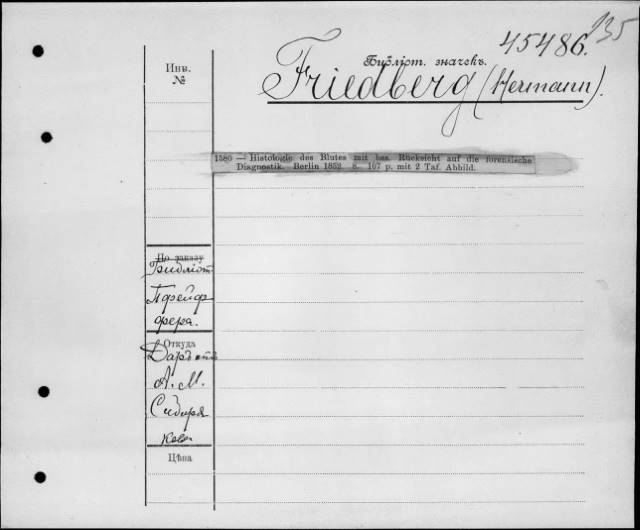 135
45486.
Инв.
№
Библіот. значекъ.
Friedberg (Hermann).
1580 — Histologie des Blutes mit bes. Rücksicht auf die forensische
Diagnostik. Berlin 1852. 8. 107 p. mit 2 Taf. Abbild.
По заказу
Библіот.
Пфейф
фера.
Откуда
Даръ отъ
А. М.
Сибиря
кова
Цѣна